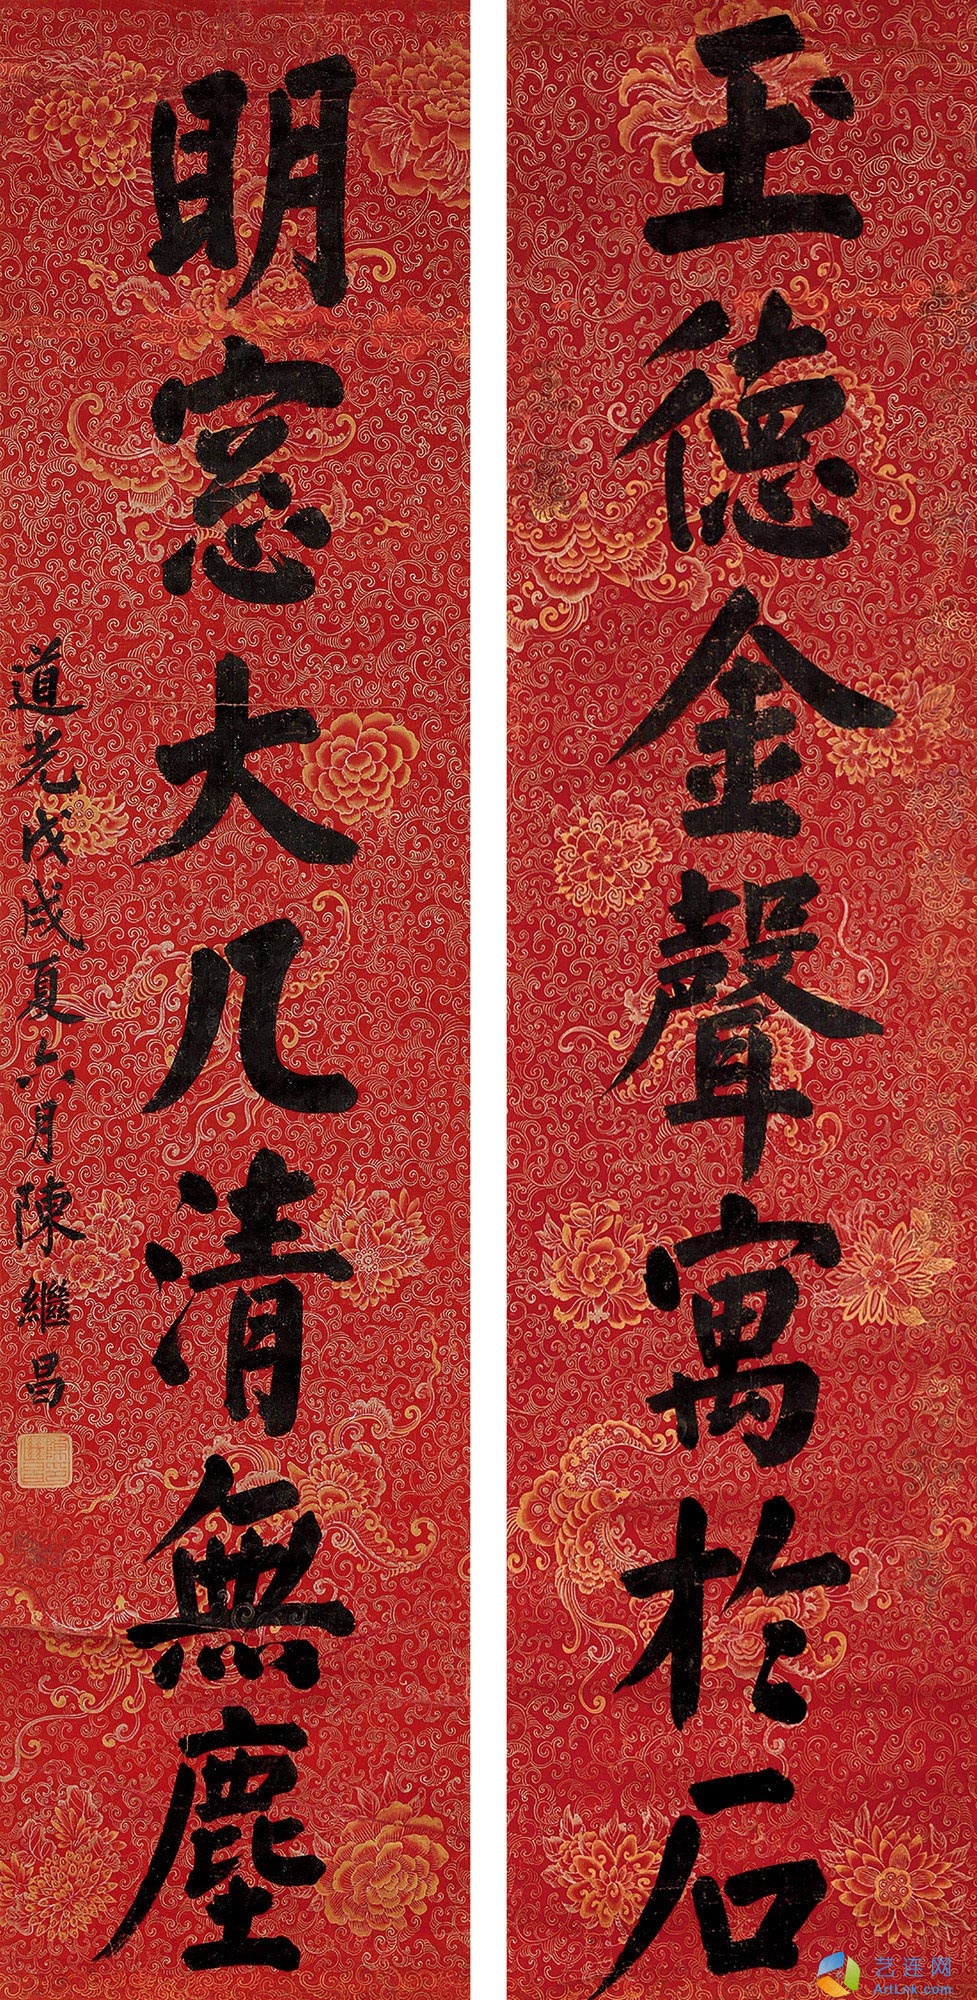 玉德金聲寓於石
明窓大几清無塵
道光戊戌夏六月陳繼昌
艺连网
ArtLnk.com